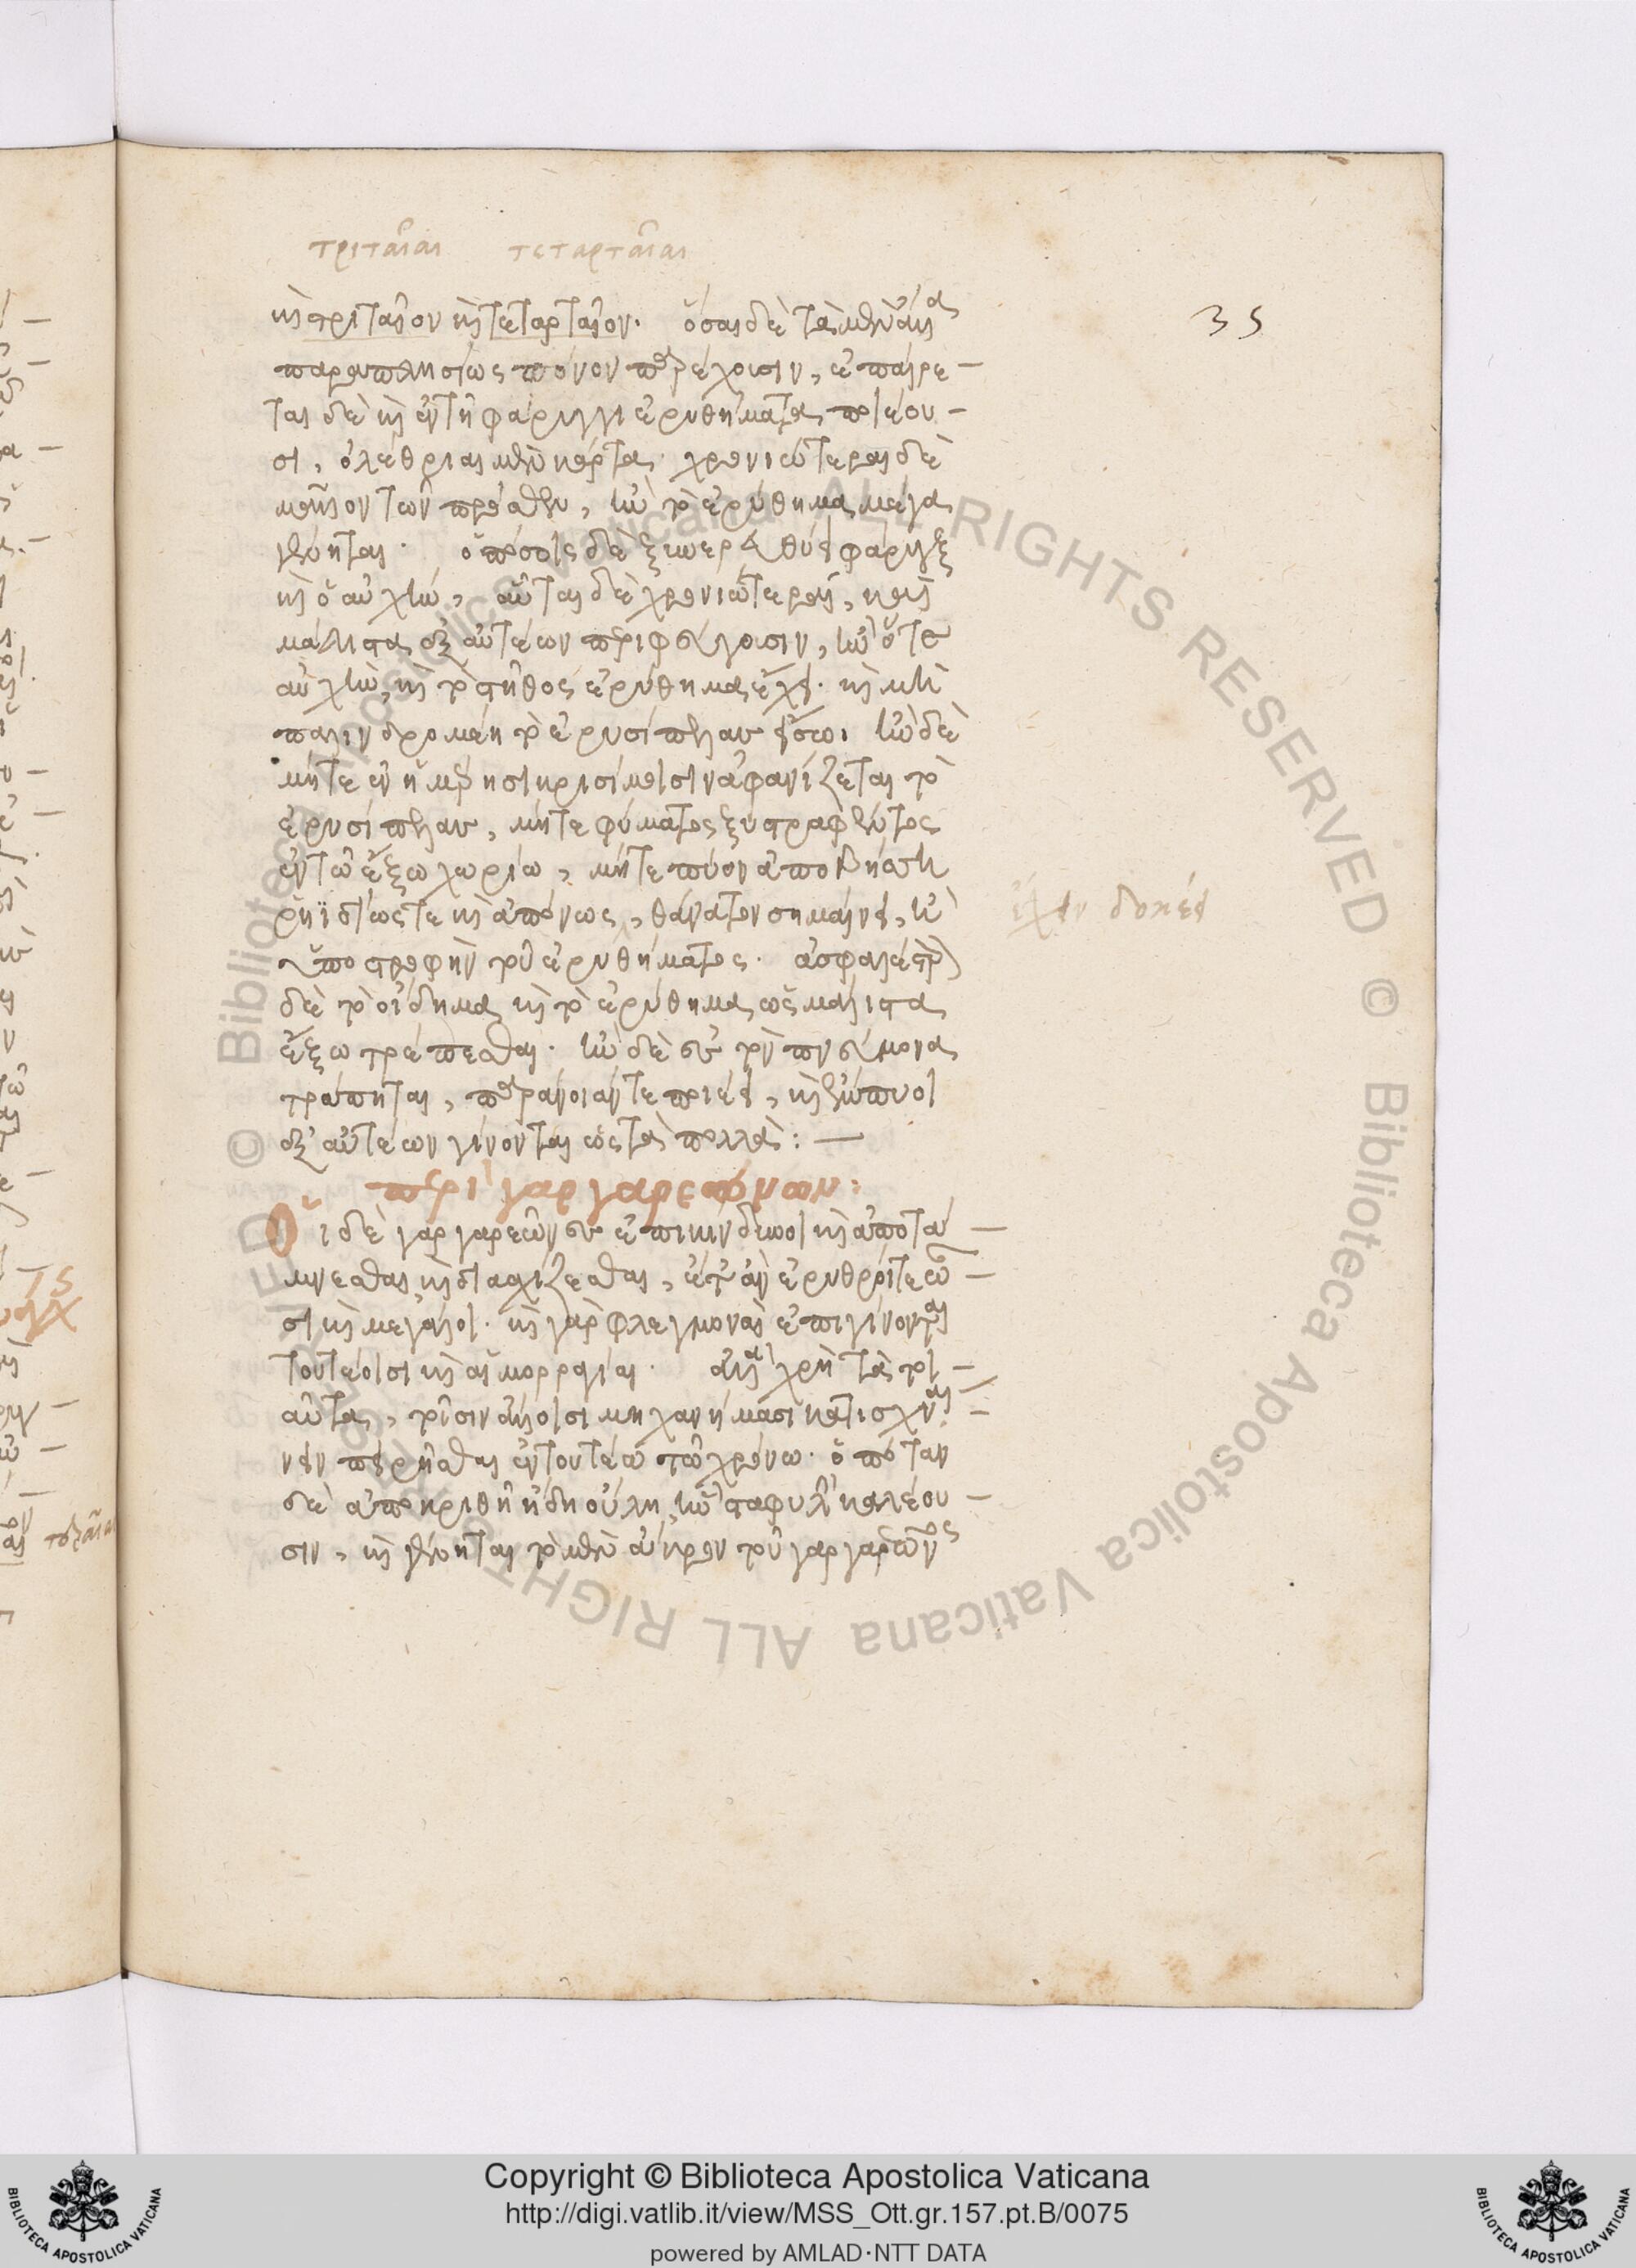 τριταῖαι τεταρταῖαι
35
καὶ τριταῖον καὶ τεταρταῖον. ὅσαι δὲ τὰ μὲν ἄλλα
παραπλησίως πόνον παρέχουσιν, ἐπαίρε-
ται δὲ καὶ ἐν τῇ φάρυγγι ἐρυθήματα ποιέου-
σι, ὀλέθριαι μὲν κάρτα. χρονιώτεραι δὲ
μᾶλλον τῶν πρόσθεν, ἢν τὸ ἐρύθημα μέγα
γένηται. ὁπόσοις δὲ ξυνερευθεῖ φάρυγξ
καὶ ὁ αὐχὴν, αὗται δὲ χρονιώτεραι, καὶ
μάλιστα ἐξ αὐτέων περιφεύγουσιν, ἢν ὅ τε
αὐχὴν, καὶ τὸ στῆθος ἐρύθημα ἔχει. καὶ μὴ
παλινδρομέῃ τὸ ἐρυσίπελας εἴσω. ἢν δὲ
μήτε ἐν ἡμέρῃσι κρισίμοισιν ἀφανίζεται τὸ
ἐρυσίπελας, μήτε φύματος ξυστραφέντος
ἐν τῷ ἔξω χωρίῳ, μήτε πύον ἀποβήσσῃ
ῥηϊδίως τε καὶ ἀπόνως, θάνατον σημαίνει, ἢ
ἔχειν δοκέει
ὑποστροφὴν τοῦ ἐρυθήματος. ἀσφαλέστερον
δὲ τὸ οἴδημα καὶ τὸ ἐρύθημα ὡς μάλιστα
ἔξω τρέπεσθαι. ἢν δὲ ἐς τὸν πνεύμονα
τράπηται, παράνοιάν τε ποιέει, καὶ ἔμπυοι
ἐξ αὐτέων γίνονται ὡς τὰ πολλά:—
περὶ γαργαρεώνων:
Οἱ δὲ γαργαρεῶνες ἐπικίνδυνοι καὶ ἀποτά-
μνεσθαι καὶ διασχίζεσθαι, ἔστ' ἂν ἐρυθροί τε ἔω-
σι καὶ μεγάλοι. καὶ γὰρ φλεγμοναὶ ἐπιγίνονται
τουτέοισι καὶ αἱμορραγίαι. ἀλλὰ χρὴ τὰ τοι-
αῦτα, τοῖσιν ἄλλοισι μηχανήμασι κατισχναί-
νειν πειρῆσθαι ἐν τουτέῳ τῷ χρόνῳ. ὁπόταν
δὲ ἀποκριθῇ ἤδη οὖλη, ἣν σταφυλὴν καλέου-
σιν, καὶ γένηται τὸ μὲν ἄκρον τοῦ γαργαρεῶνος
Copyright © Biblioteca Apostolica Vaticana
http://digi.vatlib.it/view/MSS_Ott.gr.157.pt.B/0075
powered by AMLAD·NTT DATA